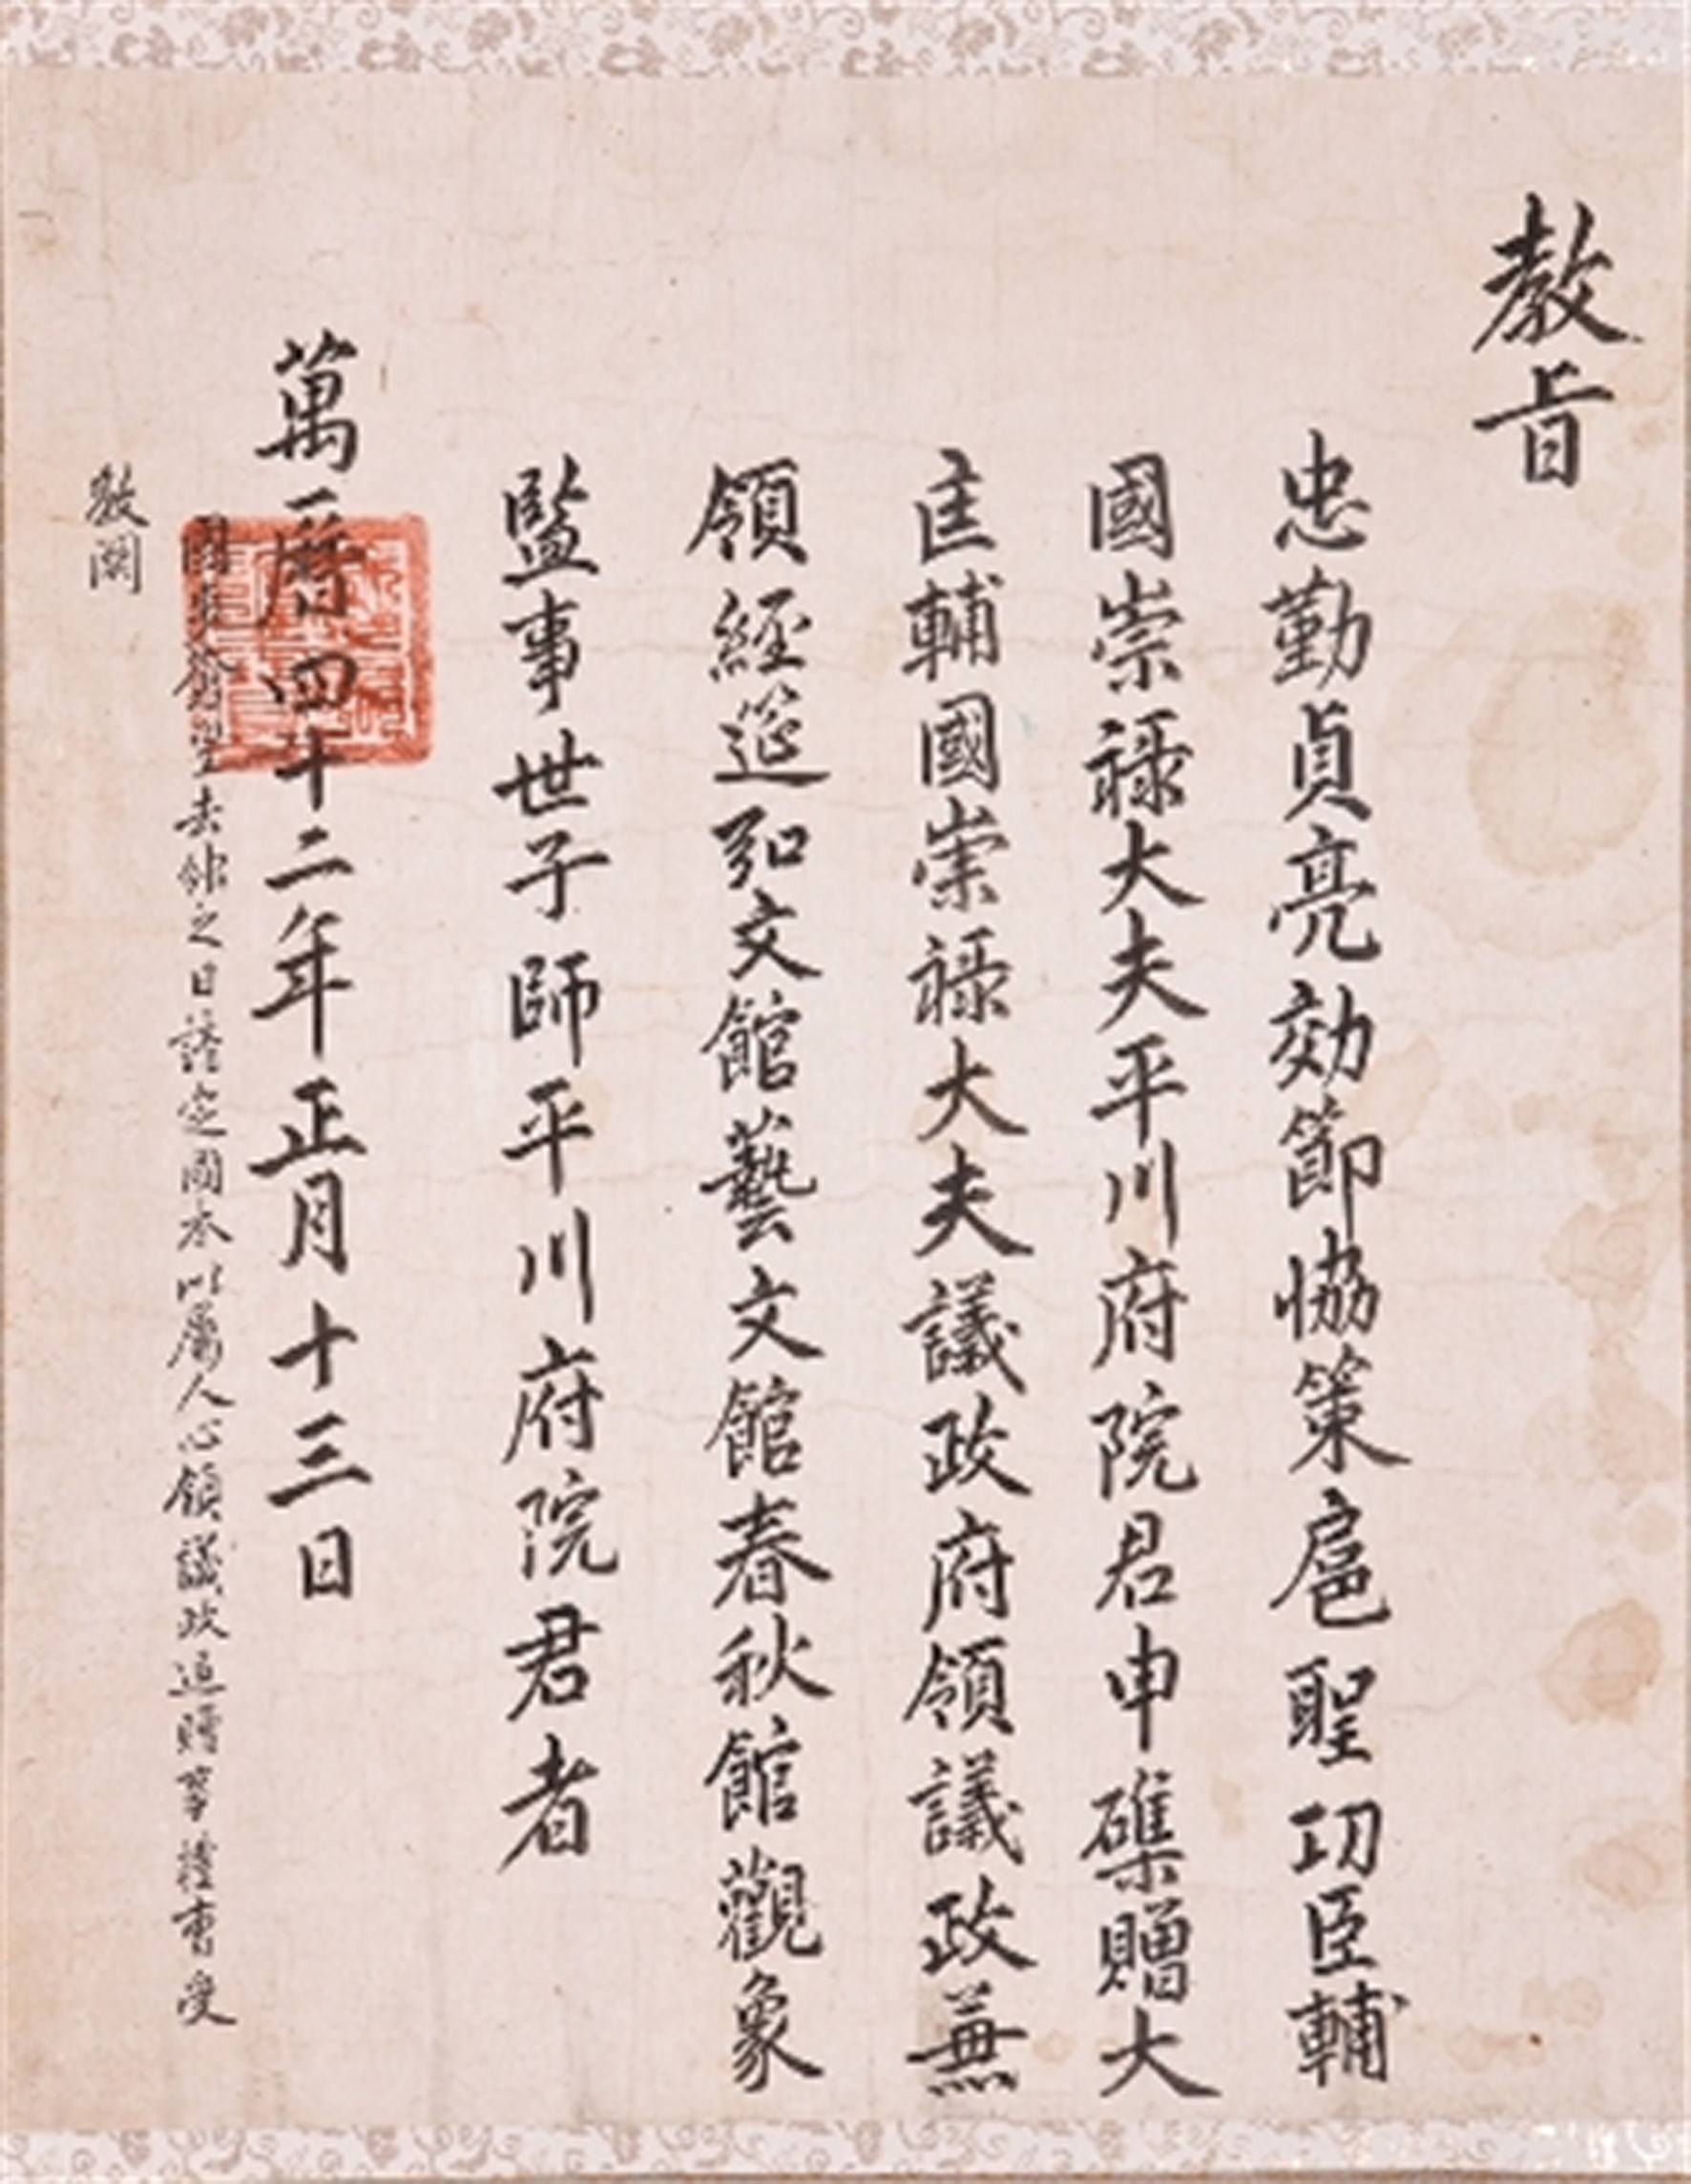 教旨
忠勤貞亮効節協策扈聖功臣輔
國崇祿大夫平川府院君申磼贈大
匡輔國崇祿大夫議政府領議政兼
領經筵弘文館藝文館春秋館觀象
監事世子師平川府院君者
萬曆四十二年正月十三日
去邠之日請定國本以屬人心領議政追贈事捧曹受
教關